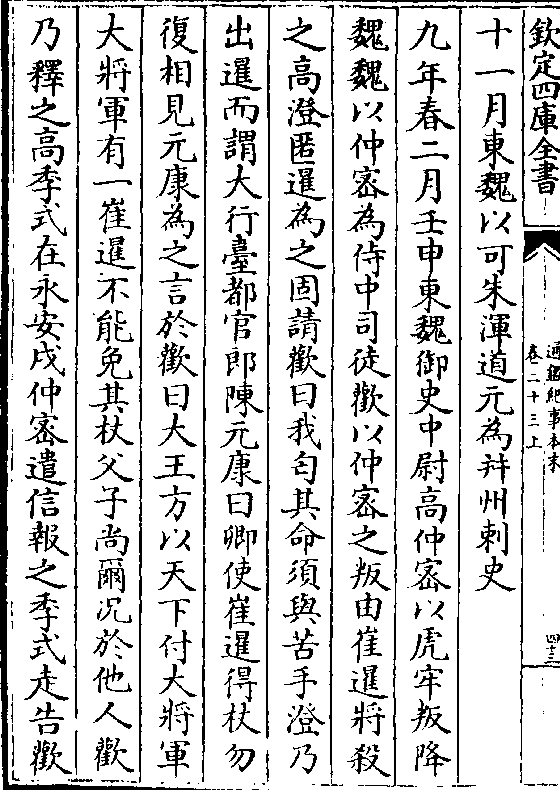 欽定四庫全書
通鑑紀事本末
卷二十三上
四十三
十一月東魏以可朱渾道元為并州刺史
九年春二月壬申東魏御史中尉高仲密以虎牢叛降
魏魏以仲密為侍中司徒歡以仲密之叛由崔暹將殺
之高澄匿暹為之固請歡曰我匄其命須與苦手澄乃
出暹而謂大行臺都官郎陳元康曰卿使崔暹得杖勿
復相見元康為之言於歡曰大王方以天下付大將軍
大將軍有一崔暹不能免其杖父子尚爾况於他人歡
乃釋之高季式在永安戍仲密遣信報之季式走告歡